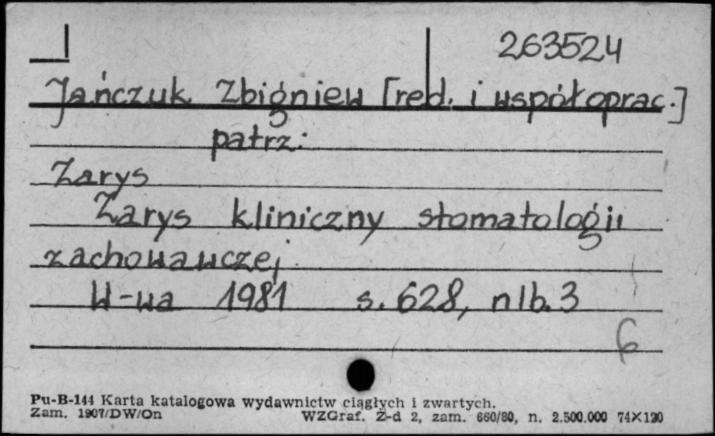 263524
Jańczuk Zbigniew [red. i współoprac.]
patrz:
Zarys
Zarys kliniczny stomatologii
zachowawczej
W-wa 1981 s. 628, nlb. 3
6
Pu-B-144 Karta katalogowa wydawnictw ciągłych i zwartych.
Zam. 1907/DW/On WZGraf. Z-d 2, zam. 660/80, n. 2.500.000 74×120